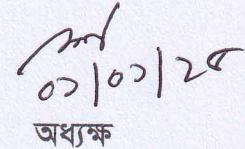 ০১|০১|২৫
অধ্যক্ষ